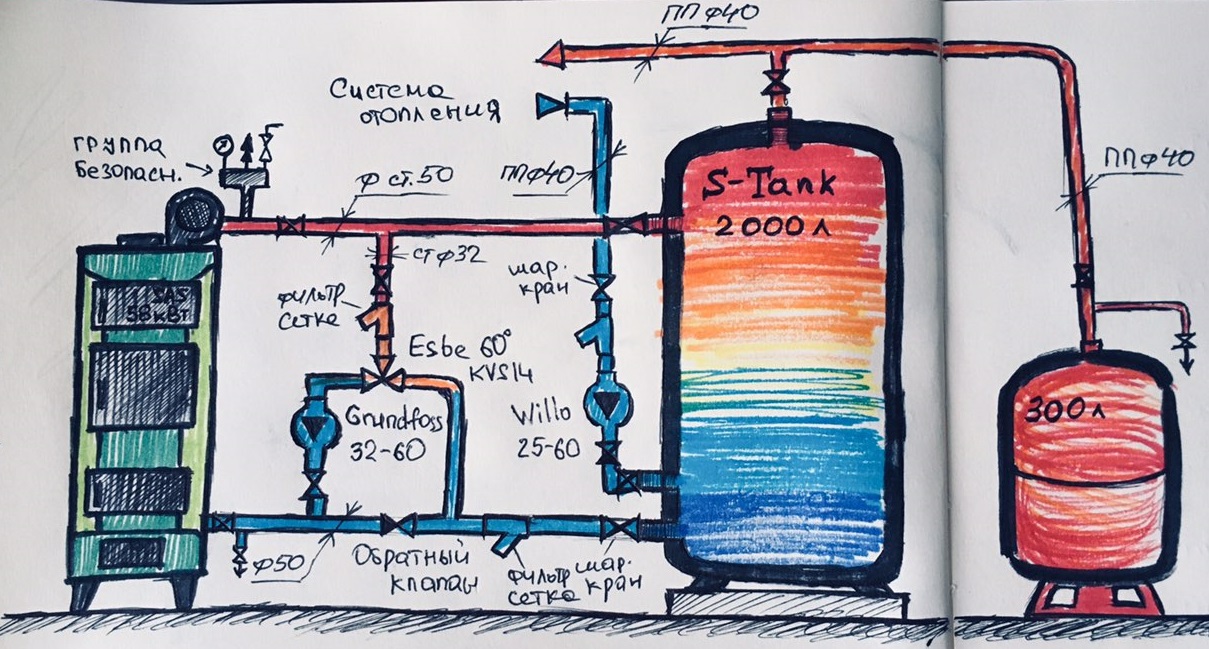 ПП ф40
Система
отопления
группа
безопасн.
ф ст.50
ППф40
ППф40
S-Tank
2000 л
ст ф32
шар.
кран
фильтр
сетка
SAS
58кВт
Esbe 60°
KVS14
Grundfoss
32-60
Willo
25-60
300л
ф50
Обратный
клапан
фильтр
сетка
шар.
кран